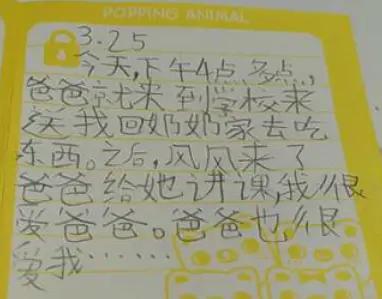 POPPING ANIMAL
3.25
今天,下午4点多点,
爸爸就来到学校来
送我回奶奶家去吃
东西。之后,风风来了
爸爸给她讲课,我很
爱爸爸。爸爸也很
爱我……